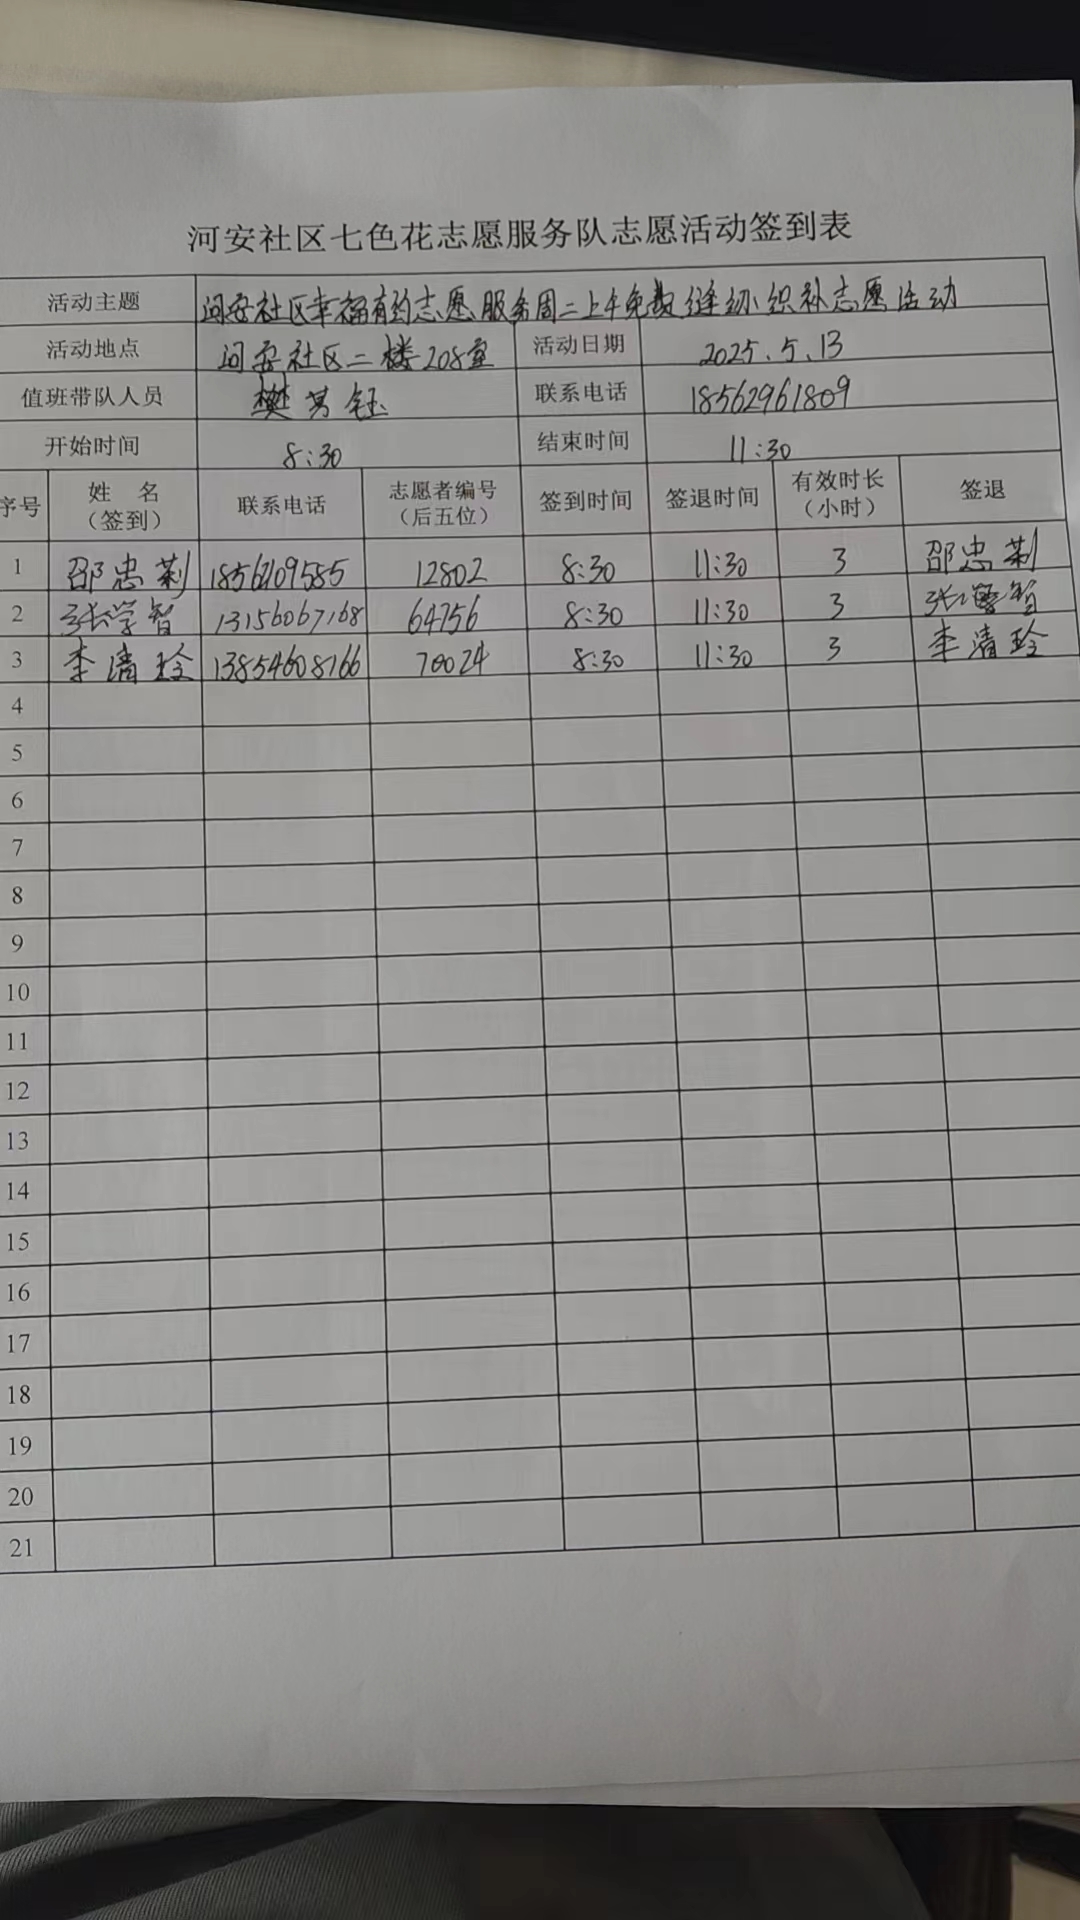 河安社区七色花志愿服务队志愿活动签到表
活动主题 河安社区幸福有约志愿服务周二上午免费缝纫、织补志愿活动
活动地点 河安社区二楼208室 活动日期 2025.5.13
值班带队人员 樊芳钰 联系电话 18562961809
开始时间 8:30 结束时间 11:30
序号 姓 名（签到） 联系电话 志愿者编号（后五位） 签到时间 签退时间 有效时长（小时） 签退
1 邵忠莉 1856209585 12802 8:30 11:30 3 邵忠莉
2 张学智 13156067168 64756 8:30 11:30 3 张学智
3 李清玲 13854608766 70024 8:30 11:30 3 李清玲
4
5
6
7
8
9
10
11
12
13
14
15
16
17
18
19
20
21